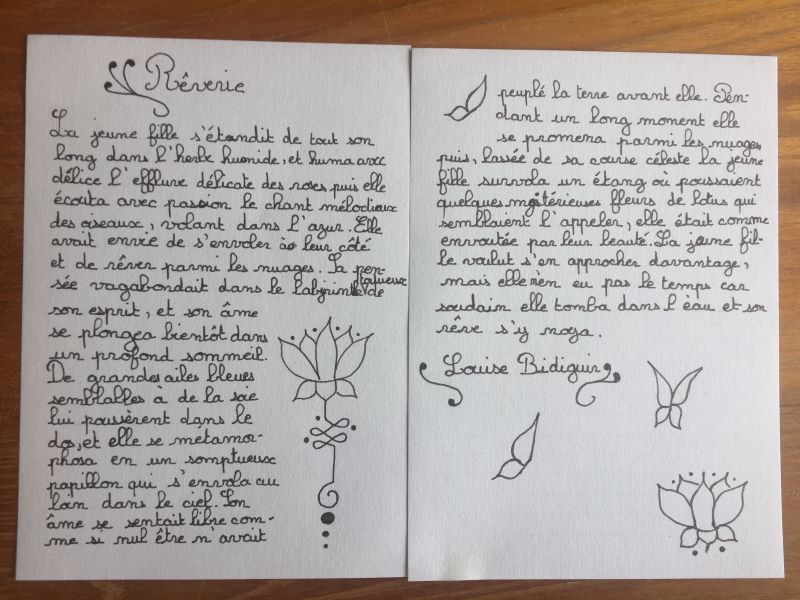 Rêverie
La jeune fille s'étendit de tout son
long dans l'herbe humide, et huma avec
délice l'effluve délicate des roses, puis elle
écouta avec passion le chant mélodieux
des oiseaux, volant dans l'azur. Elle
avait envie de s'envoler à leur côté
et de rêver parmi les nuages. Sa pen-
sée vagabondait dans le labyrinthe tortueux de
son esprit, et son âme
se plongea bientôt dans
un profond sommeil.
De grandes ailes bleues
semblables à de la soie
lui poussèrent dans le
dos, et elle se métamor-
phosa en un somptueux
papillon qui s'envola au
loin dans le ciel. Son
âme se sentait libre com-
me si nul être n'avait
peuplé la terre avant elle. Pen-
dant un long moment elle
se promena parmi les nuages,
puis, lassée de sa course céleste la jeune
fille survola un étang où poussaient
quelques mystérieuses fleurs de lotus qui
semblaient l'appeler, elle était comme
envoutée par leur beauté. La jeune fil-
le voulut s'en approcher davantage,
mais elle n'en eu pas le temps car
soudain elle tomba dans l'eau et son
rêve s'y noya.
Louise Bidiguin